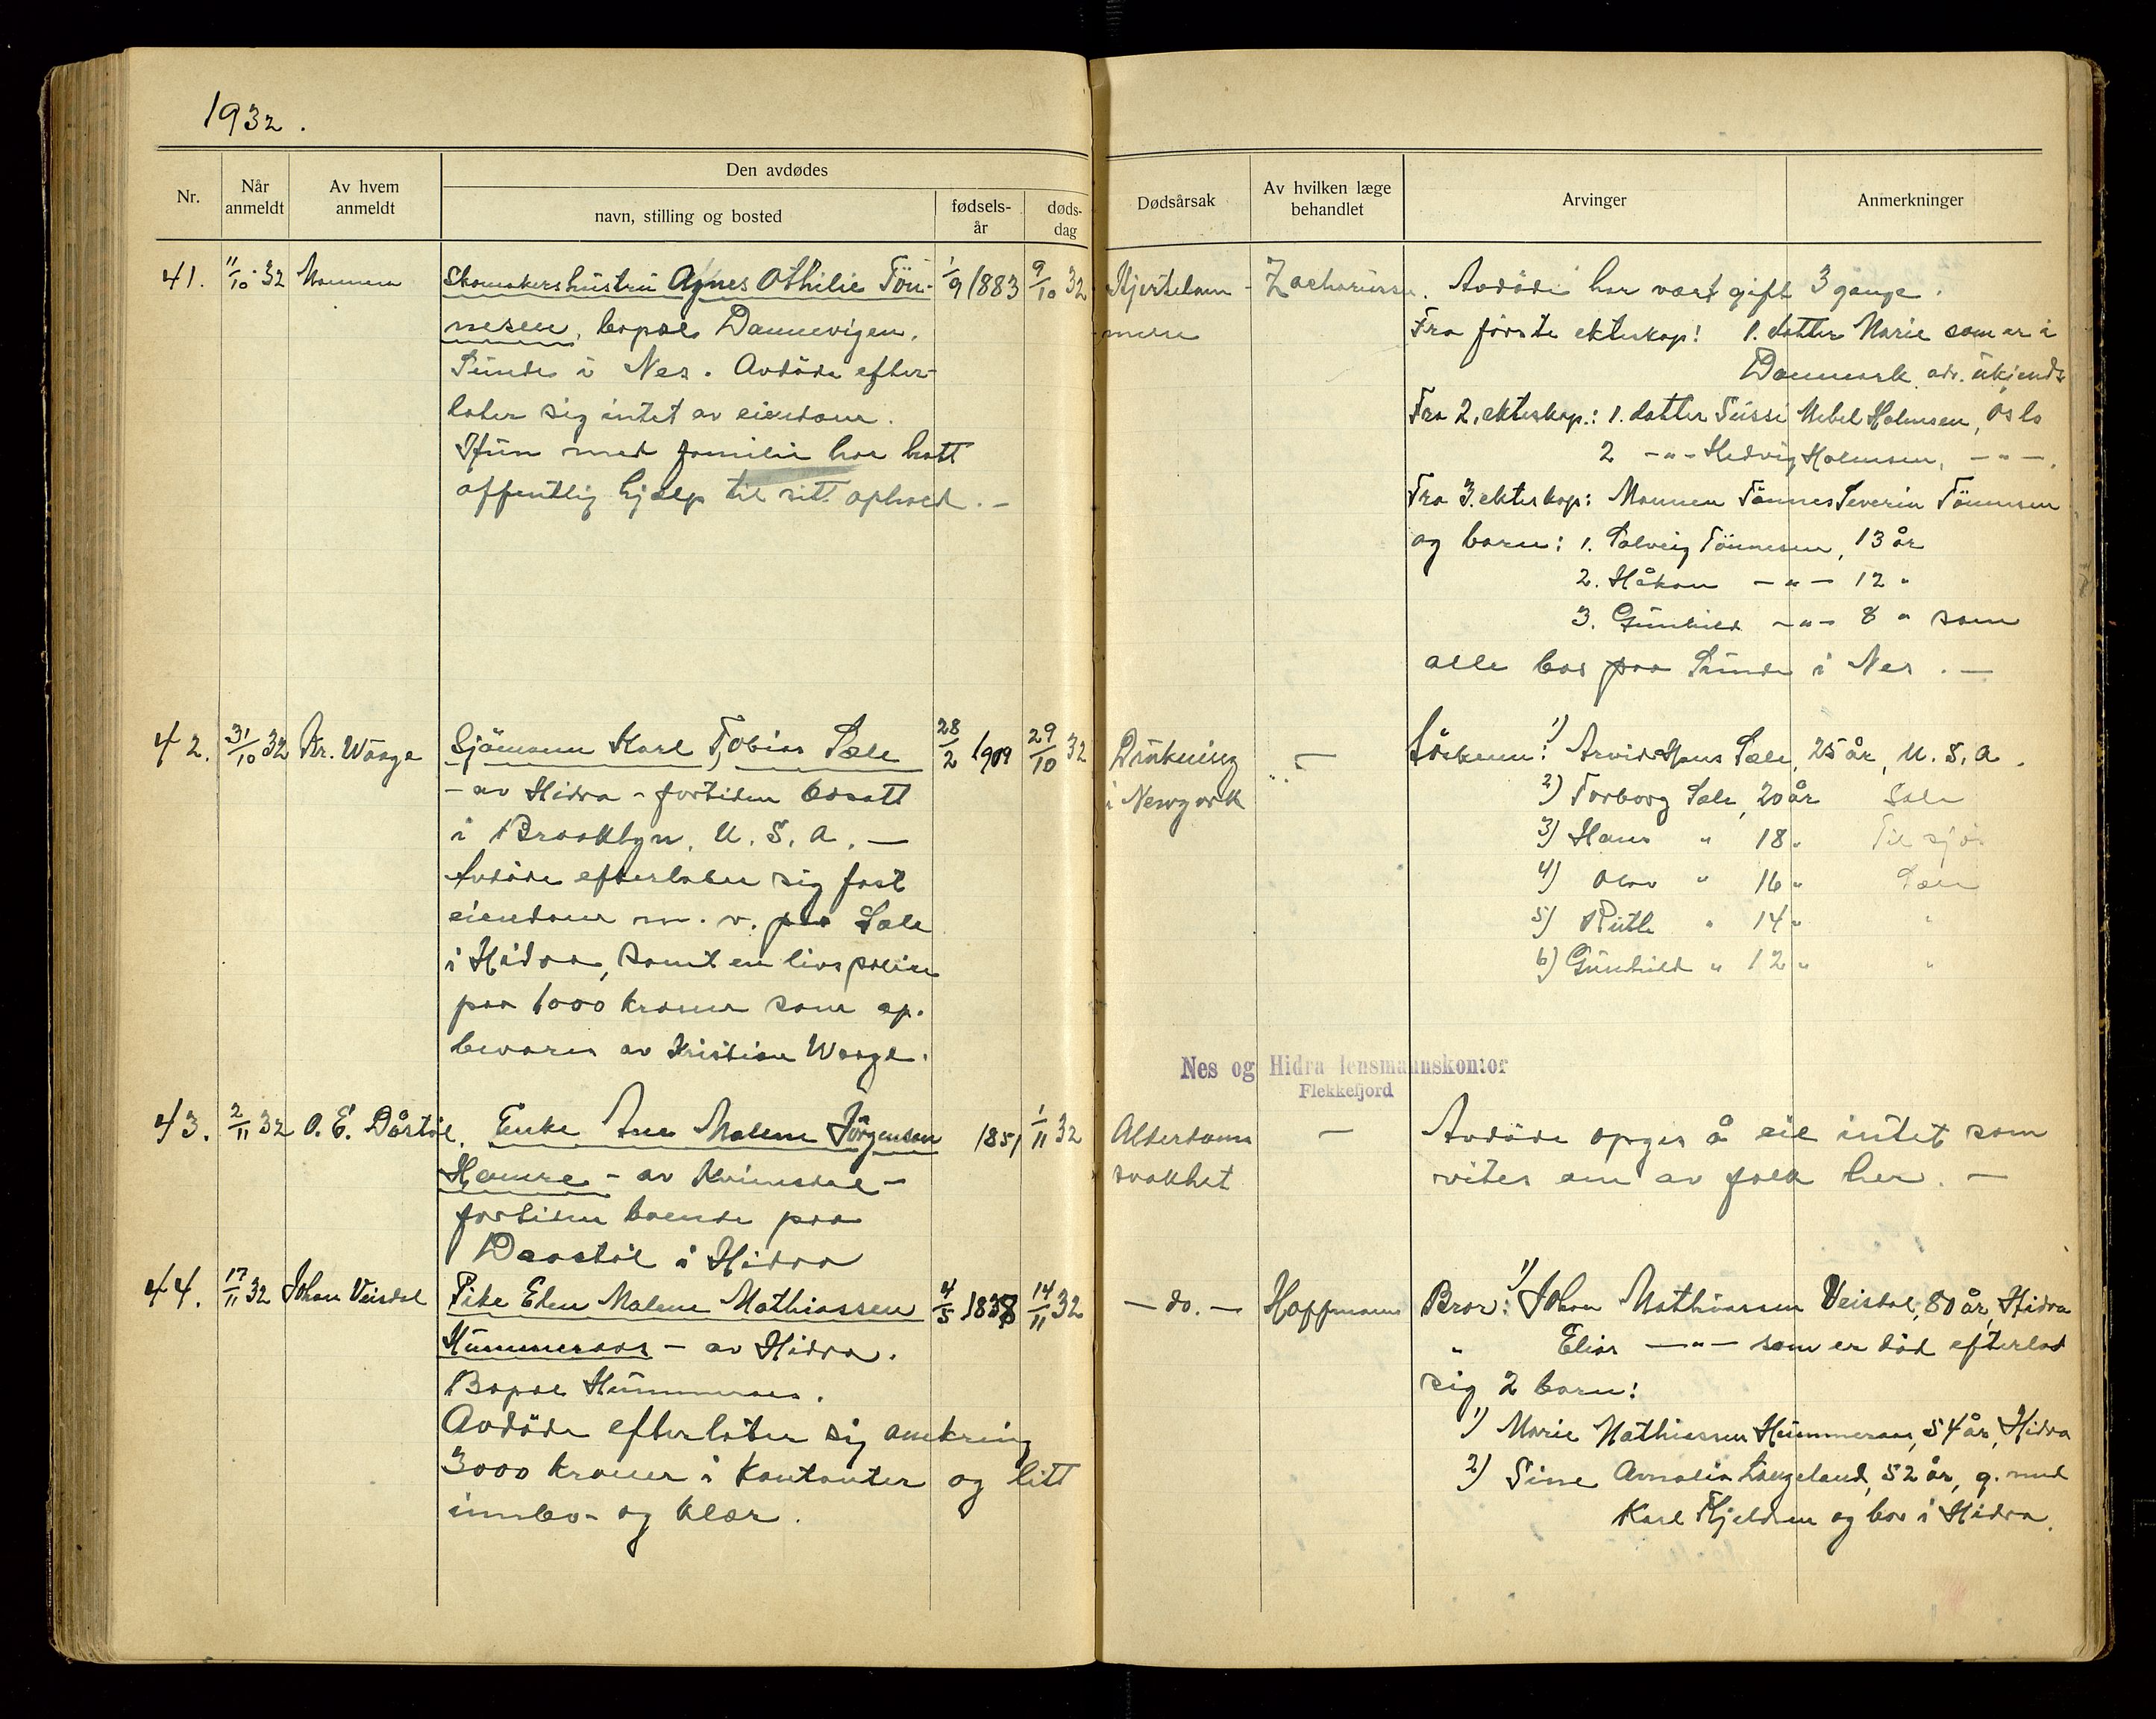 1932.
Nr.
Når anmeldt
Av hvem anmeldt
Den avdødes
navn, stilling og bosted
fødsels-år
døds-dag
Dødsårsak
Av hvilken læge behandlet
Arvinger
Anmerkninger
41. 11/10-32 Mannen
Skomakershustru Agnes Othilie Tön-
nesen, bopæl Dannevigen,
Sunde i Nes. Avdöde efter-
later sig intet av eiendom.
Hun med familie har hatt
offentlig hjælp til sitt ophold.-
1/9 1883 9/10 32
Hjertelam-
melse
Zachariassen.
Avdöde har vært gift 3 gange.
Fra første ekteskap: 1. datter Marie som er i
Danmark, adr. ukjendt
Fra 2. ekteskap.: 1. datter Sussi Mebel Holmsen, Oslo
2 -"- Hedvig Holmsen, -"-.
Fra 3. ekteskap: Mannen Tönnes Severin Tönnesen
og barn: 1. Solveig Tönnesen, 13 år
2. Håkon -"- 12 "
3. Gunhild -"- 8 " som
alle bor paa Sunde i Nes. -
42. 31/10 32 Kr. Waage
Sjömann Karl Tobias Sæle
- av Hidra - fortiden bosatt
i Brooklyn, U. S. A. -
Avdöde efterlater sig fast
eiendom m. v. paa Sæle
i Hidra, samt en livspolise
paa 1000 kroner som op-
bevares av Kristian Waage.
28/2 1909 29/10 32
Drukning
i Newyork
-
Söskenn: 1) Arvid Hans Sæle, 25 år, U. S. A.
2) Torborg Sæle, 20 år Sæle
3) Hans " 18 " Til sjös
4) Olav " 16 " Sæle
5) Ruth " 14 " "
6) Gunhild " 12 " "
Nes og Hidra lensmannskontor
Flekkefjord
43. 2/11 32 O. E. Dåstöl.
Enke Ane Malene Jörgensen
Hamre - av Kvinesdal -
fortiden boende paa
Daastöl i Hidra
1851 1/11 32
Alderdoms
svakhet
-
Avdöde opgis å eie intet som
vites om av folk her. -
44. 17/11 32 Johan Veisdal
Pike Elen Malene Mathiassen
Hummeraas - av Hidra.
Bopæl Hummeraas.
Avdöde efterlater sig omkring
3000 kroner i kontanter og litt
innbo- og klær.
4/5 1838 14/11 32
- do. -
Hoffmann
Bror: 1) Johan Mathiassen Veisdal, 80 år, Hidra
" Elias -"- som er död efterlod
sig 2 barn:
1) Marie Mathiassen Hummeraas, 54 år, Hidra
2) Sine Amalia Langeland, 52 år, g. med
Karl Kjeldsen og bor i Hidra.